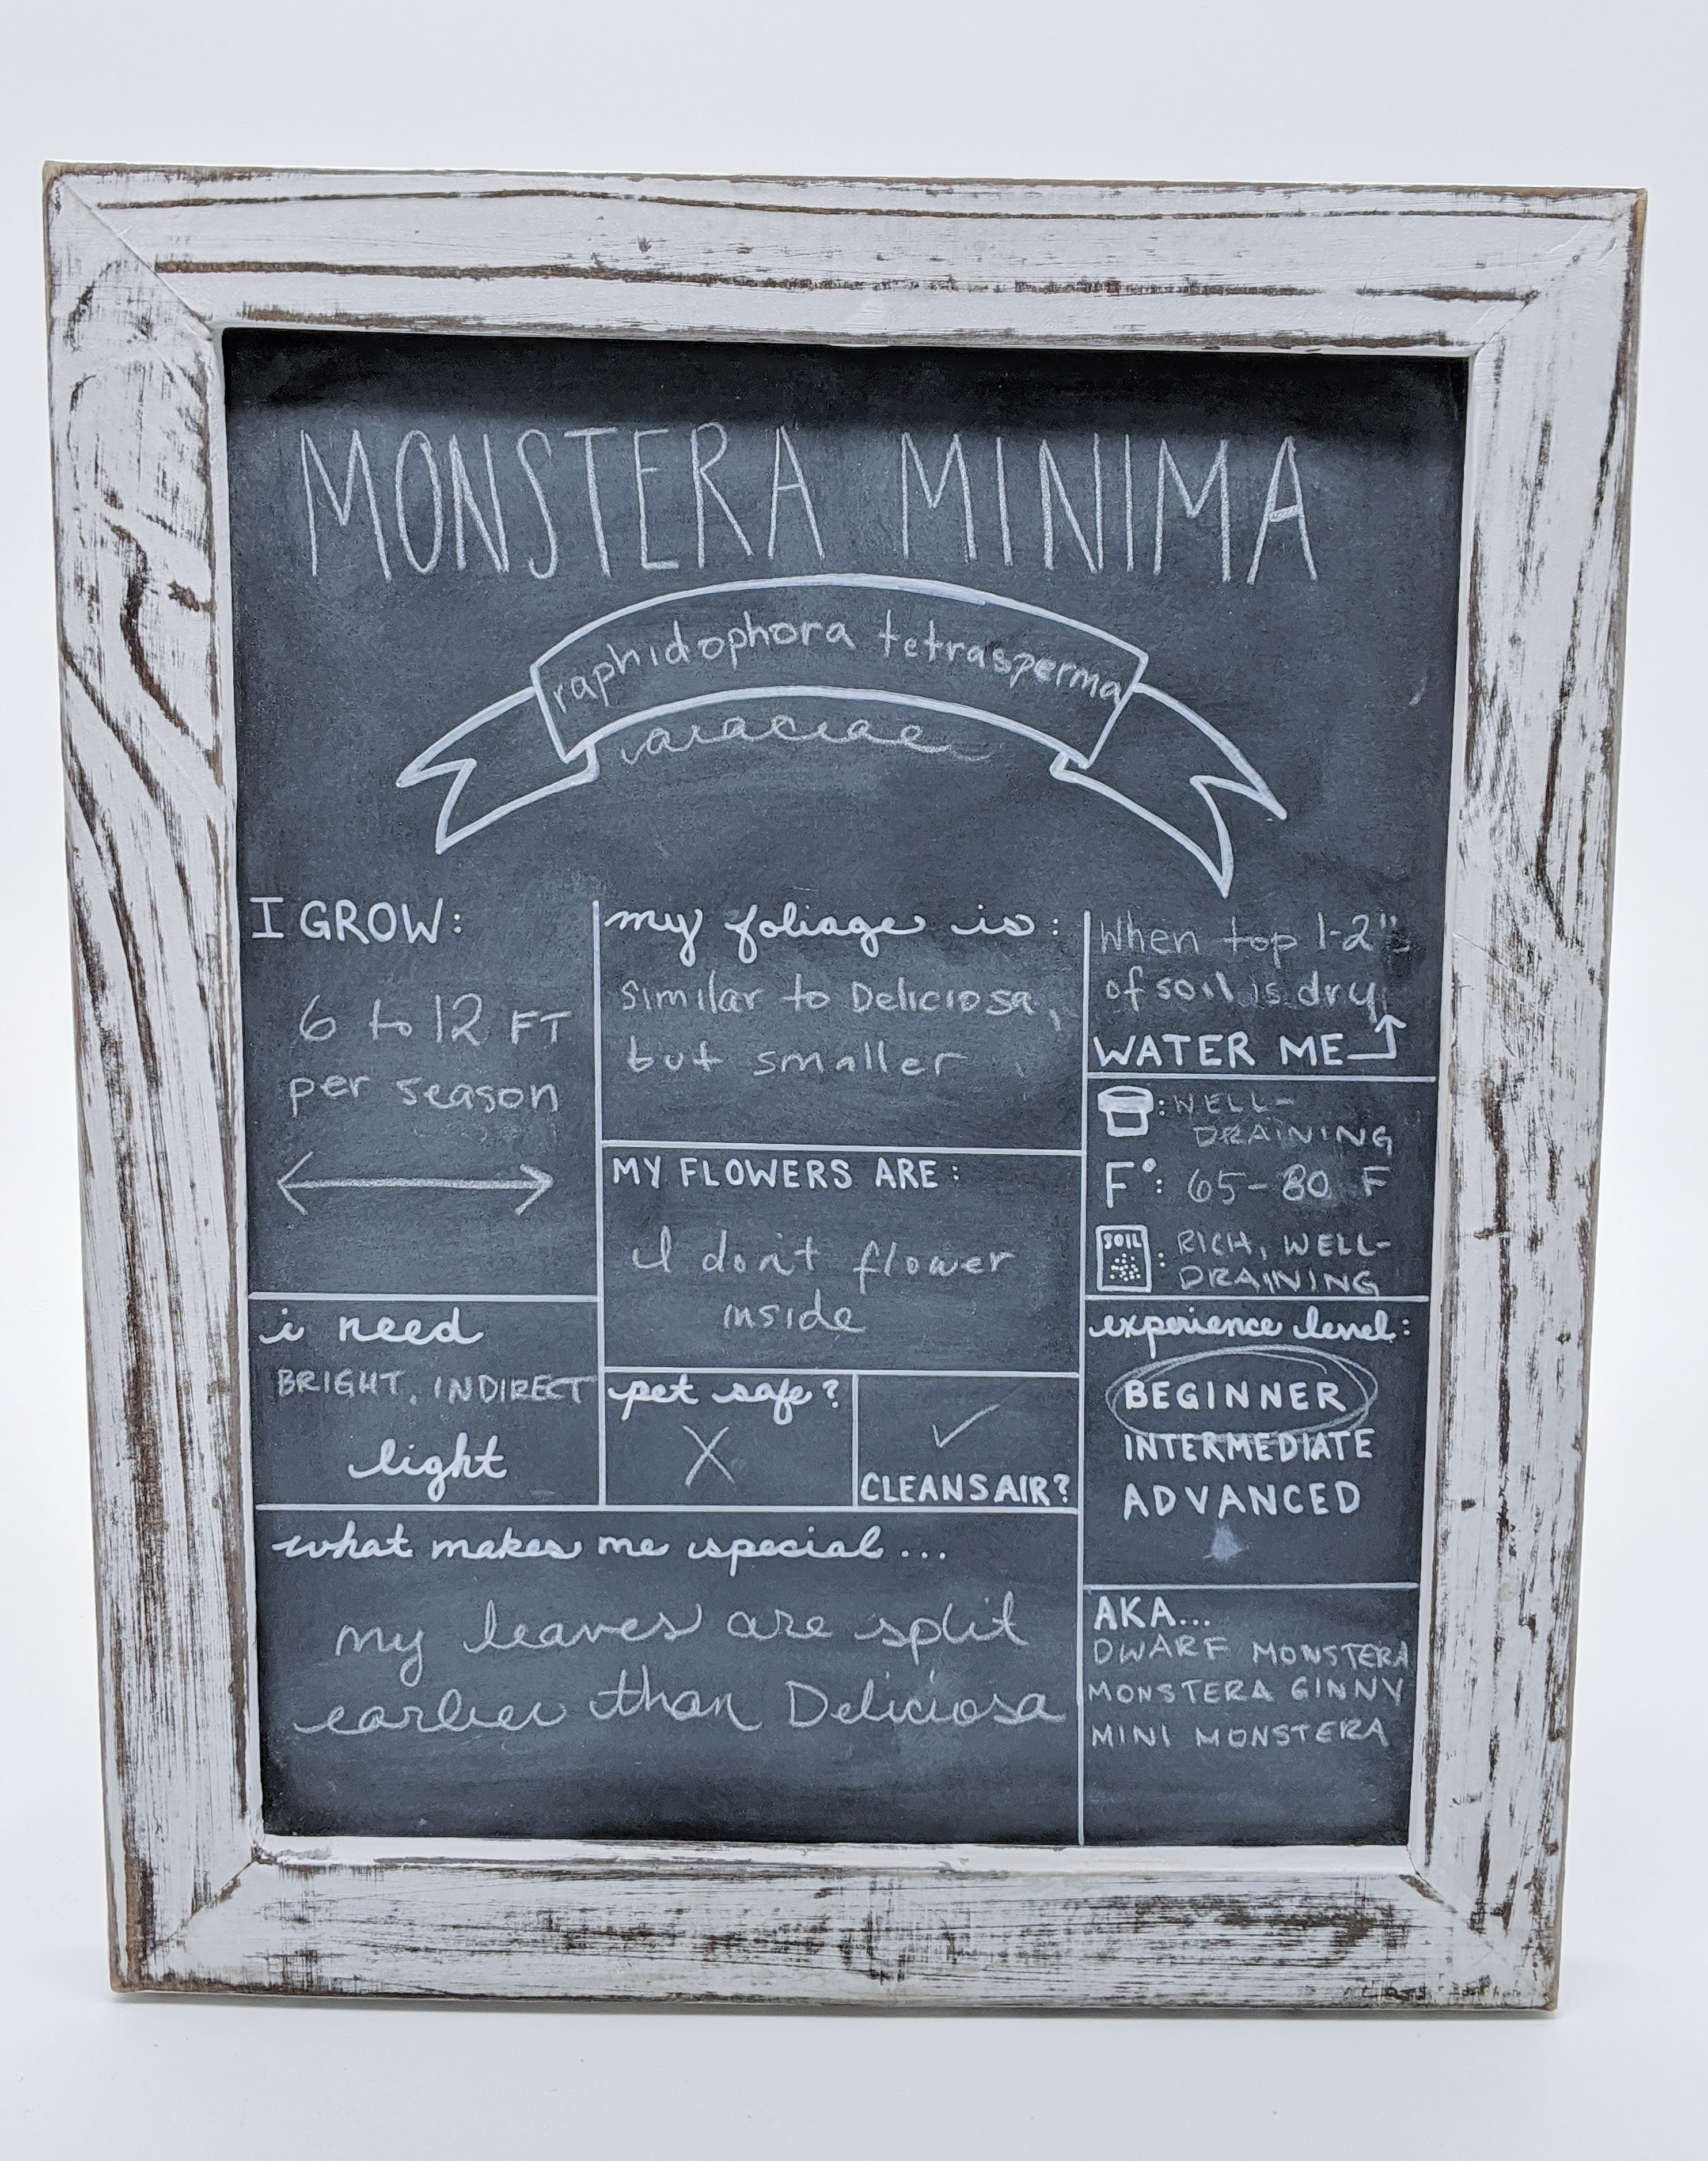 MONSTERA MINIMA
raphidophora tetrasperma
araciae
I GROW:
6 to 12 FT
per season
my foliage is:
similar to Deliciosa,
but smaller
When top 1-2"
of soil is dry
WATER ME
: WELL-
DRAINING
F°: 65-80 F
SOIL : RICH, WELL-
DRAINING
MY FLOWERS ARE:
I don't flower
inside
i need
BRIGHT, INDIRECT
light
pet safe?
X
✓
CLEANS AIR?
experience level:
BEGINNER
INTERMEDIATE
ADVANCED
what makes me special...
my leaves are split
earlier than Deliciosa
AKA...
DWARF MONSTERA
MONSTERA GINNY
MINI MONSTERA